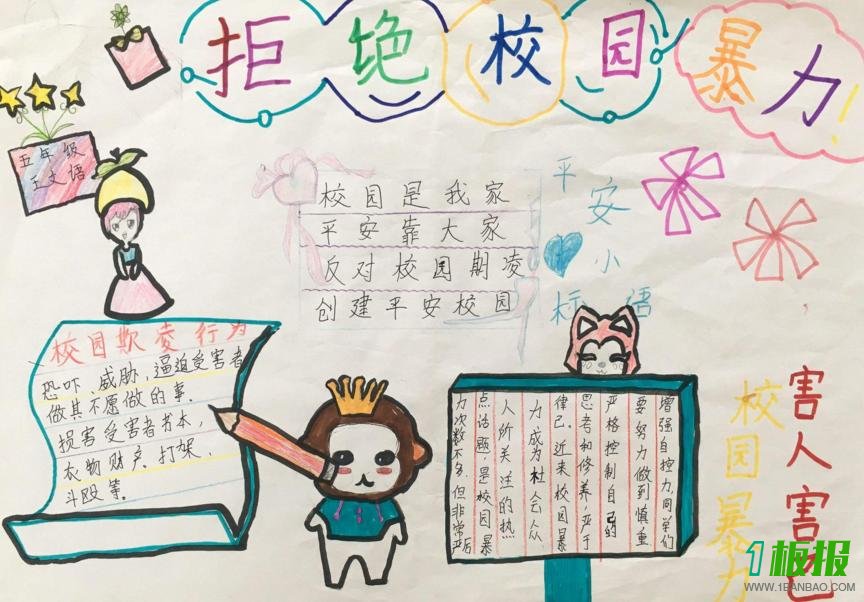 拒绝校园暴力!
五年级
王文语
校园是我家
平安靠大家
反对校园期凌
创建平安校园
平安小
标语
校园欺凌行为
恐吓、威胁,逼迫受害者
做其不愿做的事.
损害受害者书本,
衣物财产、打架、
斗殴等。
增强自控力,同学们
要努力做到慎重
严格控制自己的
思考和修养,严于
律己.近来校园暴
力成为社会众
人所关注的热
点话题,是校园暴
力次数不多,但非常严后
害人害己
校园暴力
1板报
WWW.1BANBAO.COM